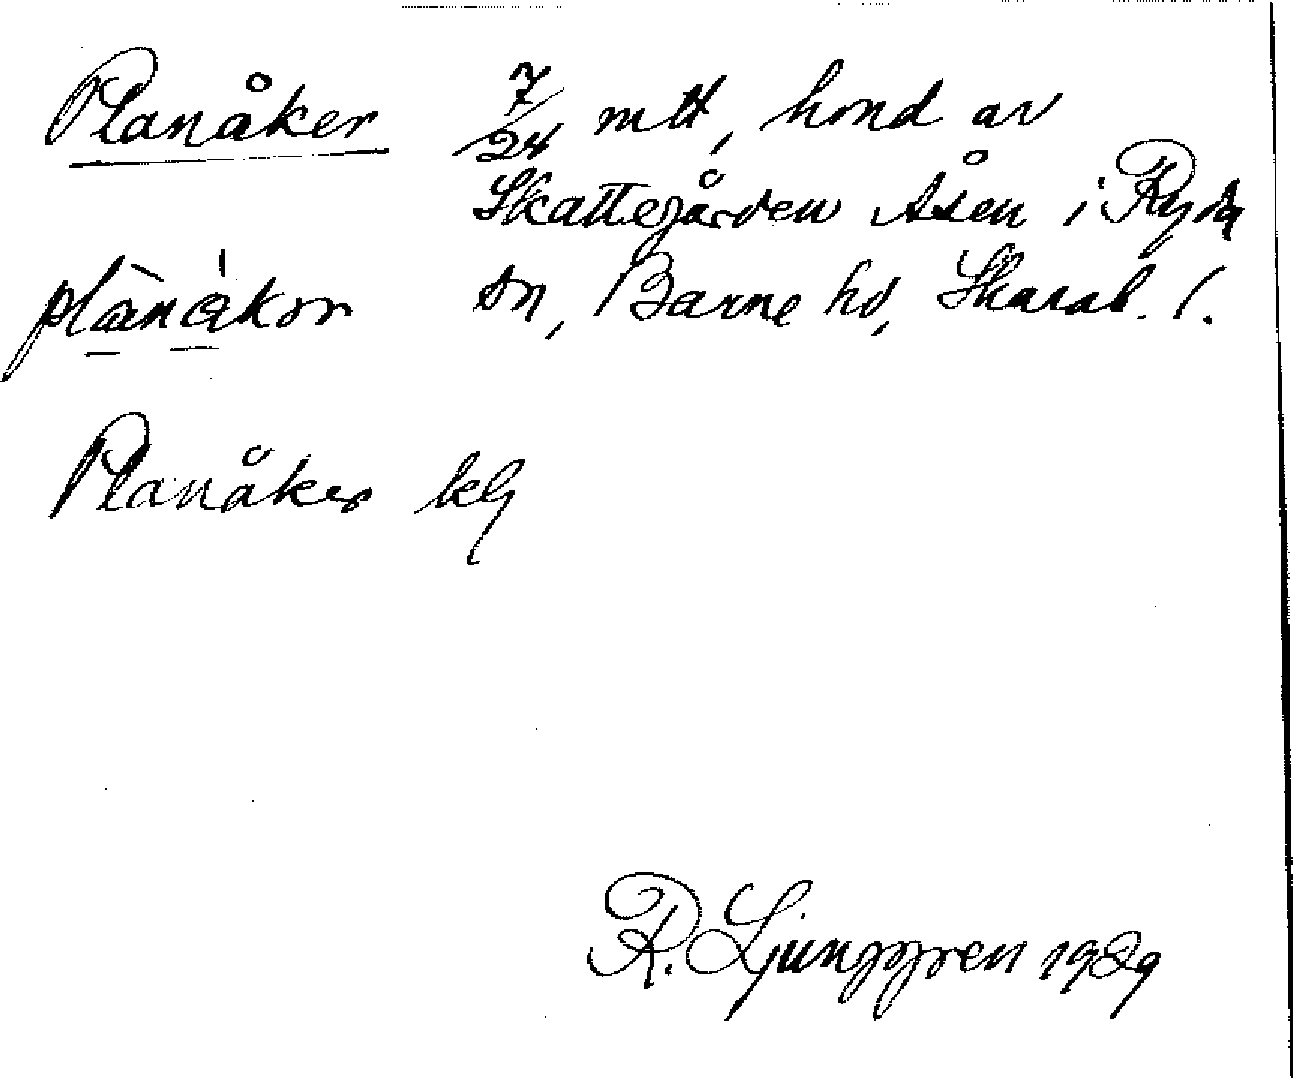 Planåker 7/24 mtl, hmd av
Skattegården Åsen i Ryda
plànákor sn, Barne hd, Skarab. l.
Planåker klg
R. Ljunggren 1929